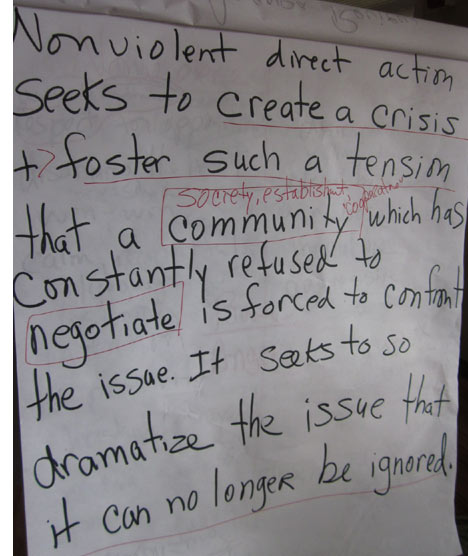 Nonviolent direct action
Seeks to create a crisis
+> foster such a tension
society, establishment, corporation
that a community which has
Constantly refused to
negotiate is forced to confront
the issue. It seeks to so
dramatize the issue that
it can no longer be ignored.